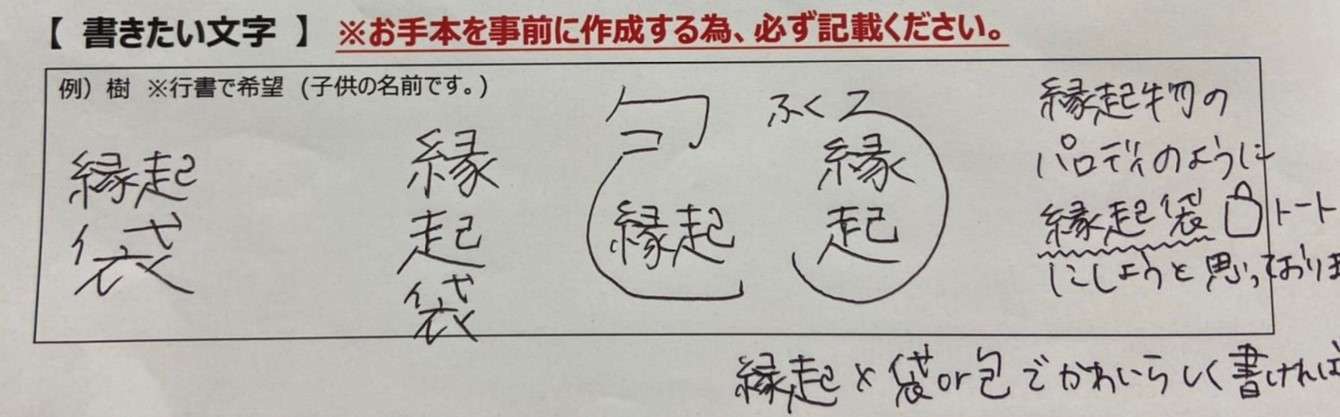 【 書きたい文字 】 ※お手本を事前に作成する為、必ず記載ください。
例）樹 ※行書で希望 (子供の名前です。)
縁起
袋
縁
起
袋
縁起
ふくろ
縁
起
縁起物の
パロディのように
縁起袋 トート
にしようと思っておりま
縁起×袋or包でかわいらしく書ければ